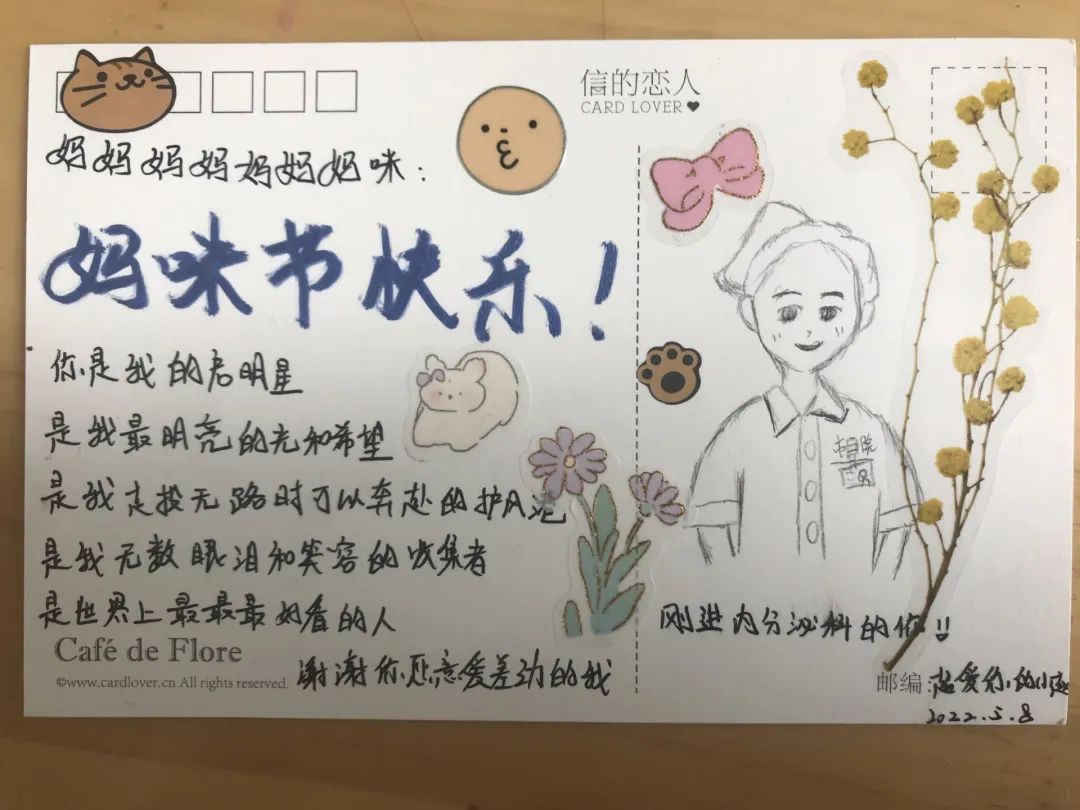 信的恋人
CARD LOVER
妈妈妈妈妈妈妈咪：
妈咪节快乐！
你是我的启明星
是我最明亮的光和希望
是我走投无路时可以奔赴的护风港
是我无数眼泪和笑容的收集者
是世界上最最最好看的人
Café de Flore
©www.cardlover.cn All rights reserved.
谢谢你愿意爱差劲的我
刚进内分泌科的你!!
邮编：
超爱你的小
2022.5.8